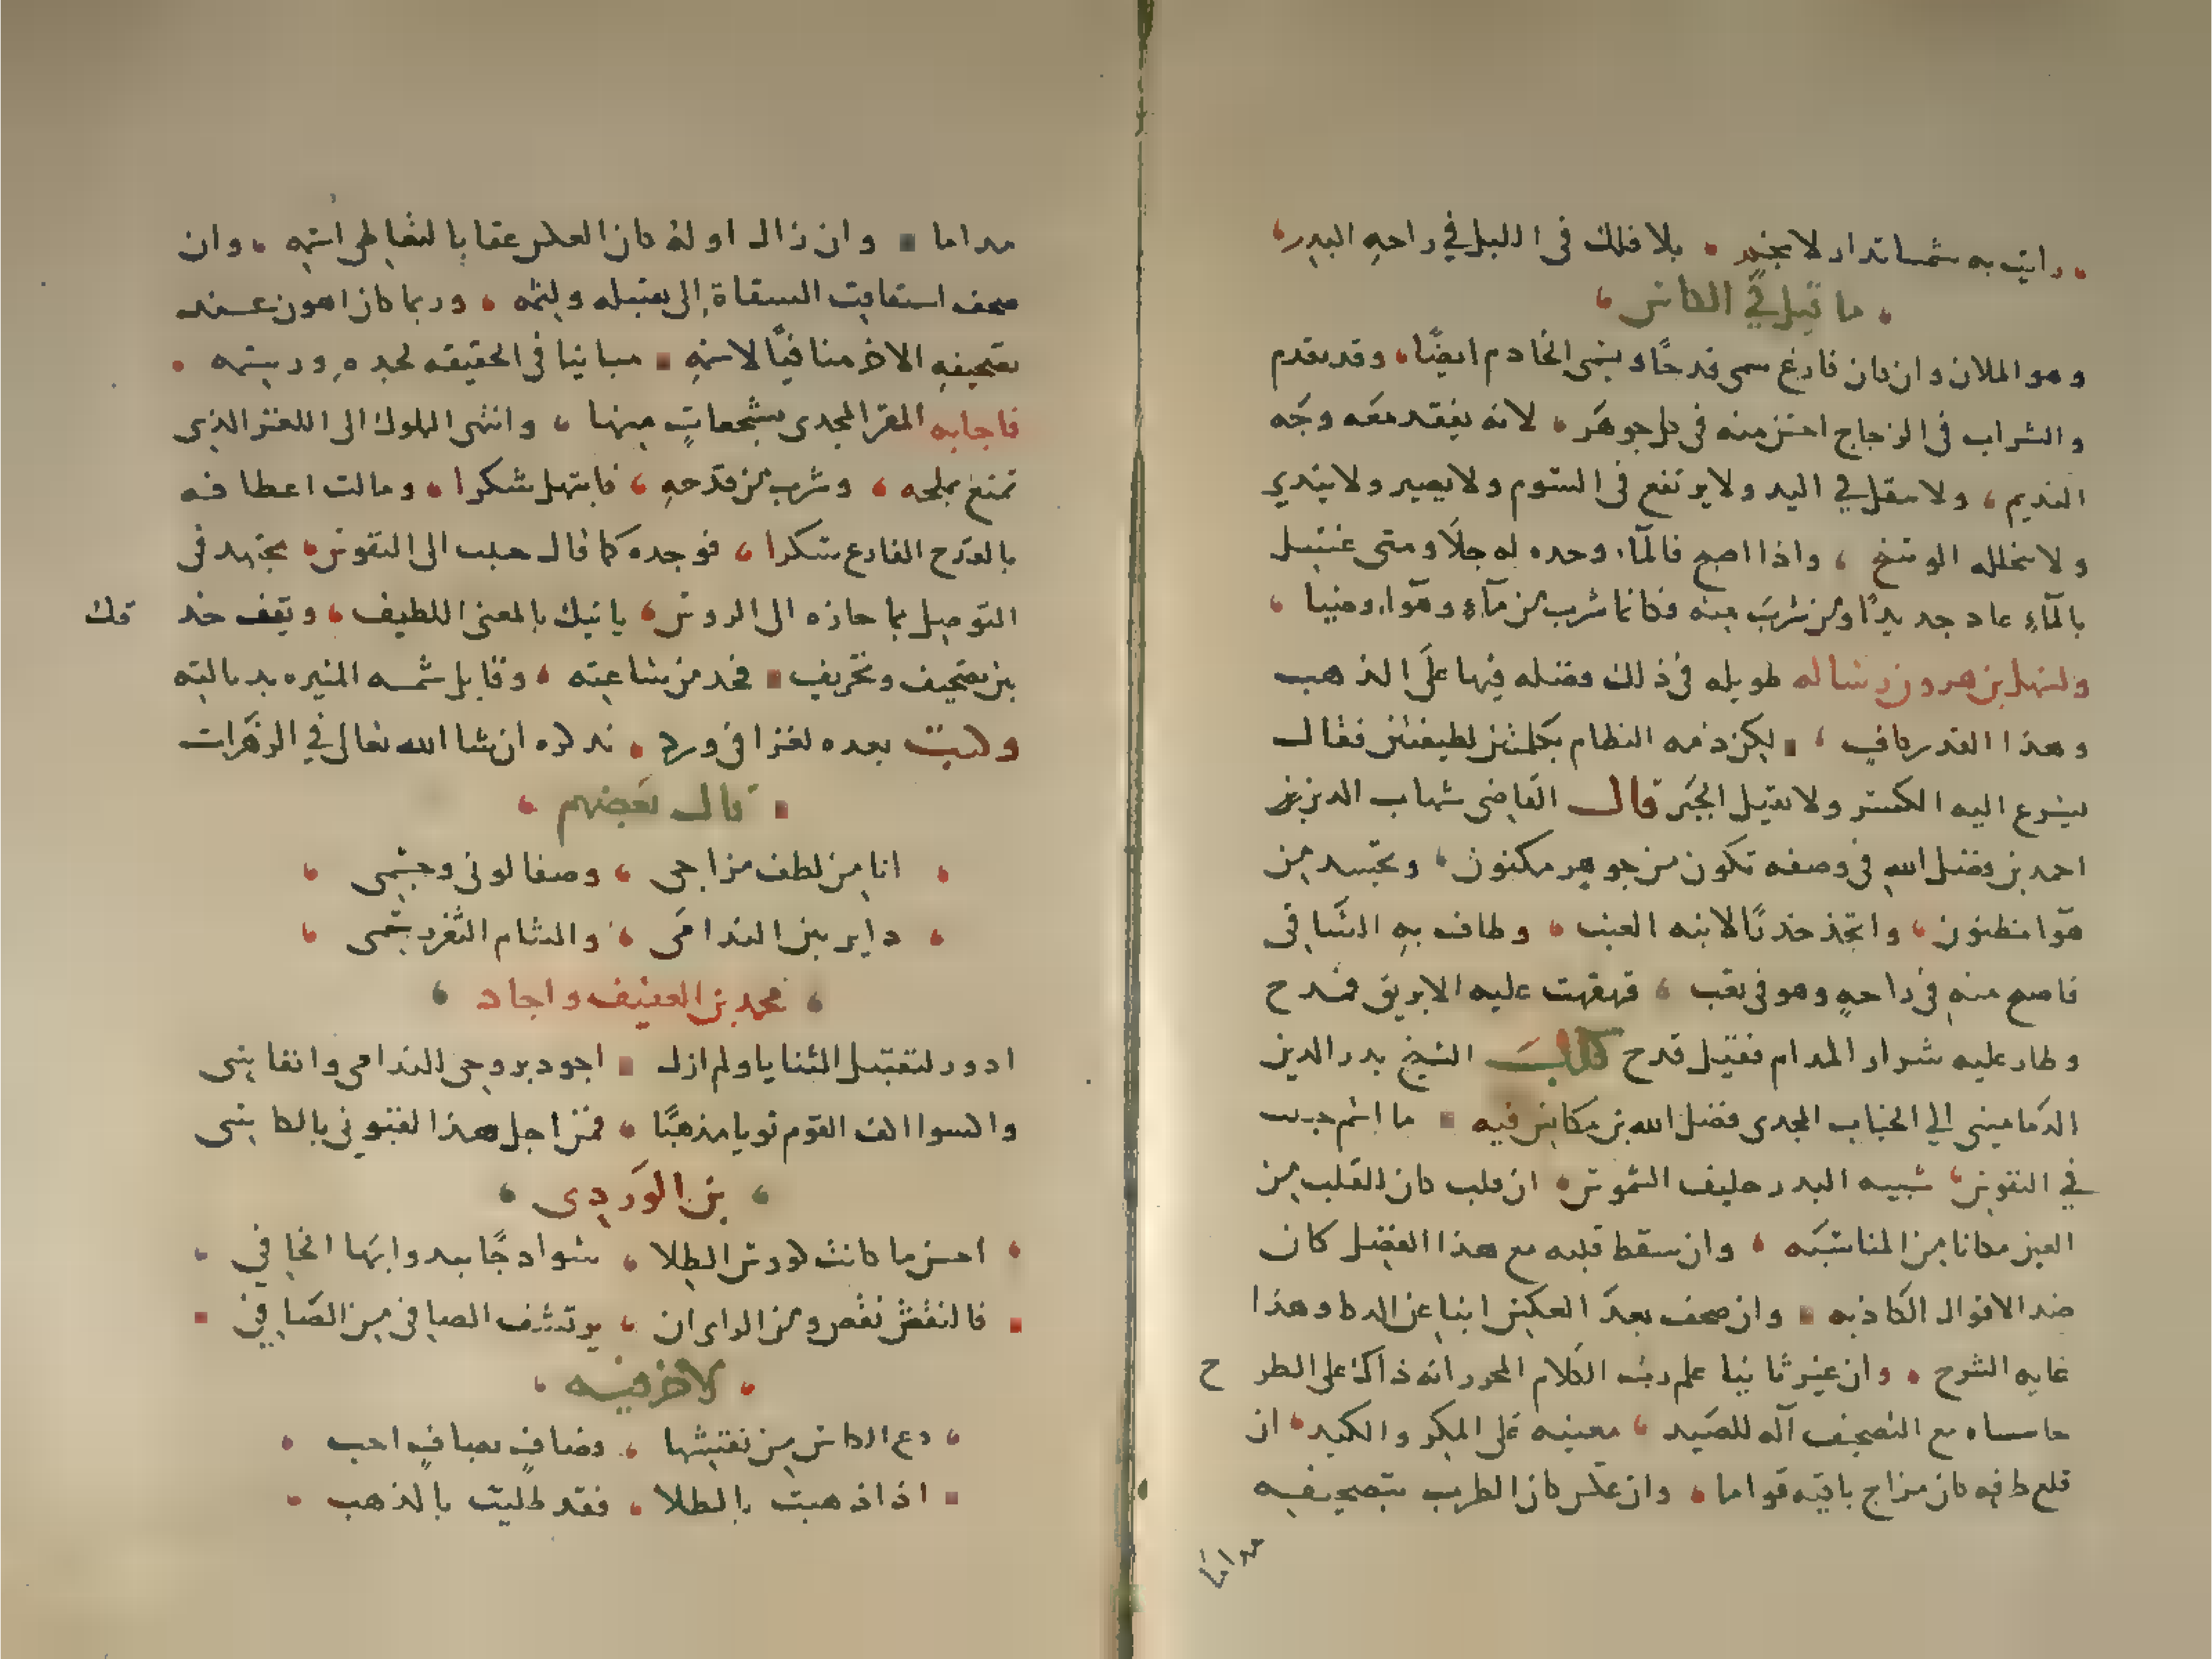 رايت به شمسا تدار لانجم بلا فلك فى الليل في راحه البدر
ما قيل في الكاس
وهو الملان وان كان فارغ سمى قدحًا ويسمى الجام ايضًا وقد تقدم
والشراب فى الزجاج احسن منه فى كل جوهر لانه يفقد معه وجه
النديم ولا يثقل في اليد ولا يرتفع فى السوم ولا يصير ولا يندى
ولا يتخلله الوسخ واذا اصبح فالماء وحده له جلاً ومتى غسل
بالماء عاد جديدًا ومن شرب منه فكانما شرب من مآء وهوآء وضيا
ولسهل بن هرون رساله طويله فى ذلك وفضله فيها على الذهب
وهذا القدر كاف لكن ذمه النظام بكلمتين لطيفتين فقال
يسرع اليه الكسر ولا يقبل الجبر قال القاضى شهاب الدين بن
احمد بن فضل الله فى وصفه تكون من جوهر مكنون وتجسد من
هوآ مظنون واتخذ خدنًا لابنه العنب وطاف به الساقى
فاصبح منه فى راحه وهو فى تعب قهقهت عليه الابريق فشدح
وطار عليه شرار المدام فقيل قدح كتب الشيخ بدر الدين
الدمامينى الي الجناب المجدى فضل الله بن مكانس فيه ما اسم حبيب
في النفوس شبيه البدر حليف الشموس ان قلب كان القلب من
العين مكانا من المناسبه وان سقط قلبه مع هذا الفضل كان
ضد الاقوال الكاذبه وان صحف بعد العكس انبا عن الدكا وهذا
غايه الشرح وان غير ثانيا علم رب الكلام المحرر انه ذاك على الطرح
حامساه مع التصحيف آله للصيد معينه على المكر والكيد ان
قلع طافه كان مزاج باقيه قواما وان عكس كان الطرب بتصحيفه
مداما
مداما وان زال اوله كان العكس عقابا لتعاطى اسمه وان
صحف استعابت السقاة إلى تقبيله ولثمه وربما كان اهون عنده
تصحيفه الاخر منافيًا لاسمه مباينا فى الحقيقه لحده ورسمه
فاجابه المقر المجدى بسجعات منها وانتهى المملوك الى اللغز الذى
تمتع بملحه وشرب من قدحه فابتهل شكرا ومالت اعطافه
بالقدح الفارغ سكرا فوجده كما قال حبيب الى النفوس يجتهد فى
التوصيل بما حازه الى الروس ياتيك بالمعنى اللطيف ويقف حد فك
بين تصحيف وتحريف فخمد من ساعته وقابل شمسه المنيره بدبالته
وكتبت بعده لغزا فى ورد نذكره ان شا الله تعالى في الزهرات
قال بعضهم
انا من لطف مزاجى وصفا لونى وجسمى
داير بين الندامى والتثام الثغر سمى
محمد بن العفيف واجاد
ادور لتقبيل الثنايا ولم ازل اجود بروحى للندامى وانفاسى
واكسوا اكف القوم ثوبا مذهبًا فمن اجل هذا لقبونى بالكاسى
بن الوردى
احسن ما كانت كووس الطلا سوادجًا يبدوا بها الخافي
فالنقش نقص ومن الراى ان يرتشف الصافى من الصافي
لاخر فيه
دع الكاس من نقشها وصاف بصاف احب
اذا ذهبت بالطلا فقد طليت بالذهب